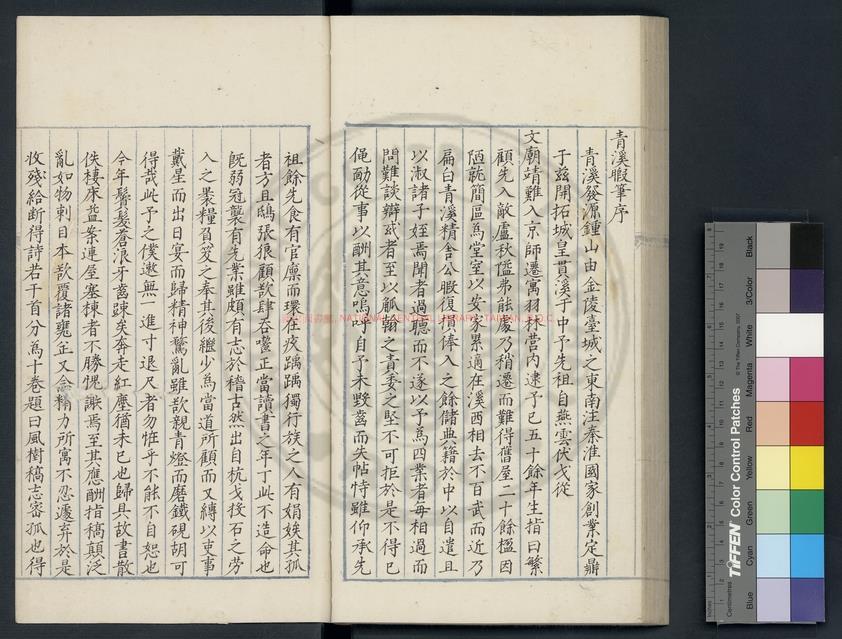 青溪暇筆序
青溪發源鍾山由金陵臺城之東南注秦淮國家創業定鼎
于茲開拓城皇貫溪于中予先祖自燕雲伏戈從
文廟靖難入京師遷寓羽林營內逮予已五十餘年生指曰繁
顧先人敝廬秋隘弗能處乃稍遷而難得舊屋二十餘楹因
陋就簡區為堂室以安家累適在溪西相去不百武而近乃
扁曰青溪精舍公暇復損俸入之餘儲典籍於中以自遣且
以淑諸子姪焉聞者過聽而不遂以予為四業者每相過而
問難談辯或者至以觚翰之責委之堅不可拒於是不得已
黽勔從事以酬其意嗚呼自予未毀齒而失怙恃雖仰承先
祖餘先食有官廩而環在疚踽踽獨行族之人有娟娭其孤
者方且鴟張狼顧欲肆吞噬正當讀書之年丁此不造命也
旣弱冠襲有先業雖頗有志於稽古然出自杭戈投石之勞
入之裹糧負笈之奉其後繼少為當道所顧而又縛以吏事
戴星而出日宴而歸精神驚亂雖欲親青燈而磨鐵硯胡可
得哉此予之僕遬無一進寸退尺者勿恠乎不能不自恕也
今年鬢髮蒼浪牙齒踈矣奔走紅塵猶未已也歸具故書散
佚棲床益案連屋塞棟者不勝愧謝焉至其應酬指稿顛泛
亂如物剌日本欲覆諸甕缶又念精力所寓不忍遽弃於是
收殘給断得詩若干首分為十卷題曰風樹稿志密孤也得
Color Control Patches
TIFFEN
© The Tiffen Company, 2007
Blue
Cyan
Green
Yellow
Red
Magenta
White
3/Color
Black
Centimetres
Inches